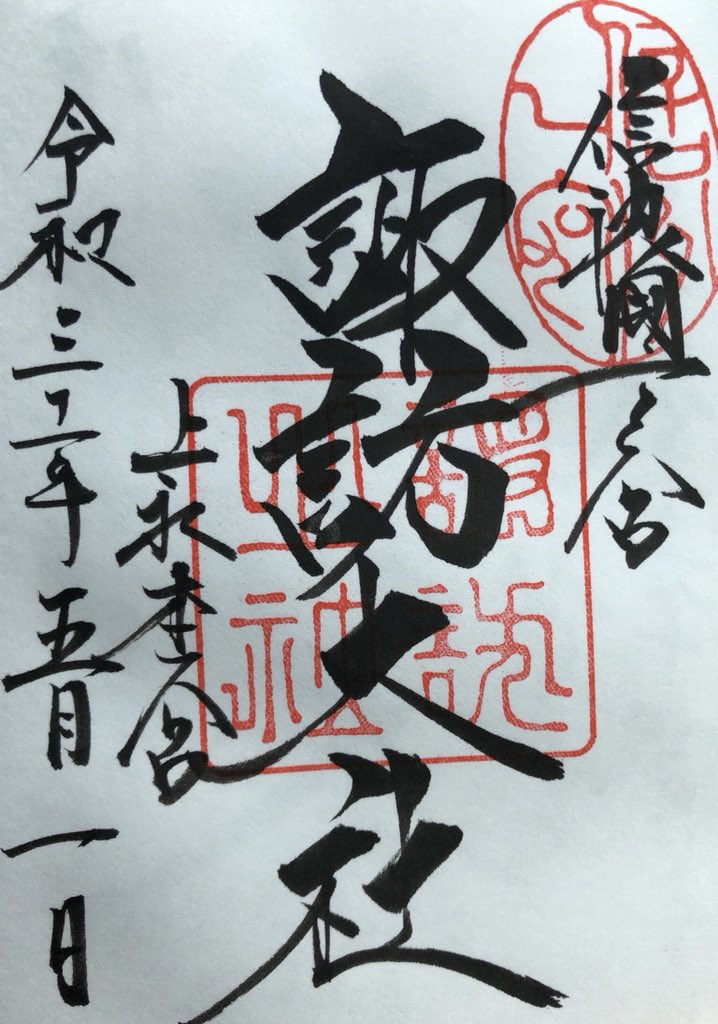 信濃國一之宮
諏訪大社
上社本宮
令和三年五月一日